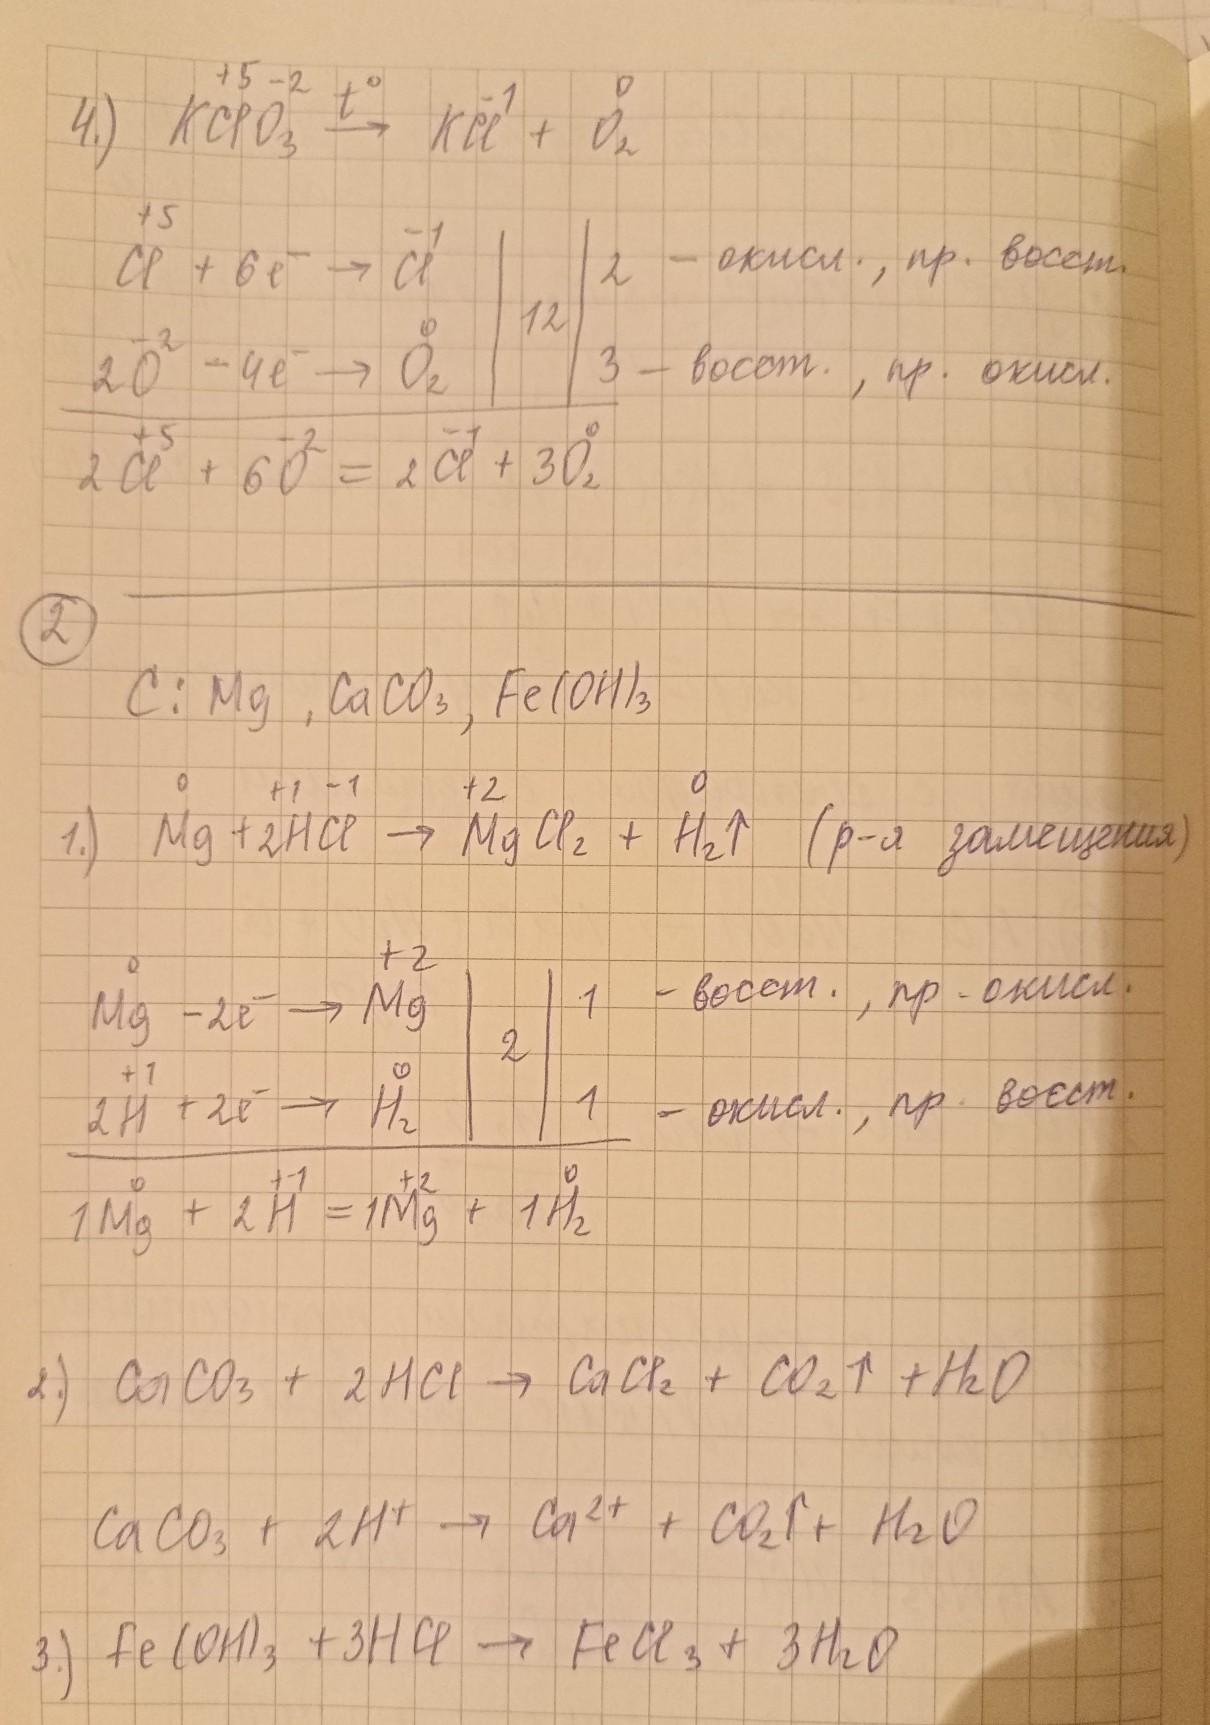 +5 -2 0
4.) KClO3 t° → KCl -1 + O2
+5 -1
Cl + 6e⁻ → Cl | | 2 - окисл., пр. восст.
12
-2 0
2O - 4e⁻ → O2 | | 3 - восст., пр. окисл.
+5 -2 -1 0
2Cl + 6O = 2Cl + 3O2
2
C: Mg, CaCO3, Fe(OH)3
0 +1 -1 +2 0
1.) Mg + 2HCl → MgCl2 + H2↑ (р-я замещения)
0 +2
Mg - 2e⁻ → Mg | | 1 - восст., пр. окисл.
2
+1 0
2H + 2e⁻ → H2 | | 1 - окисл., пр. восст.
0 +1 +2 0
1Mg + 2H = 1Mg + 1H2
2.) CaCO3 + 2HCl → CaCl2 + CO2↑ + H2O
CaCO3 + 2H⁺ → Ca²⁺ + CO2↑ + H2O
3.) Fe(OH)3 + 3HCl → FeCl3 + 3H2O